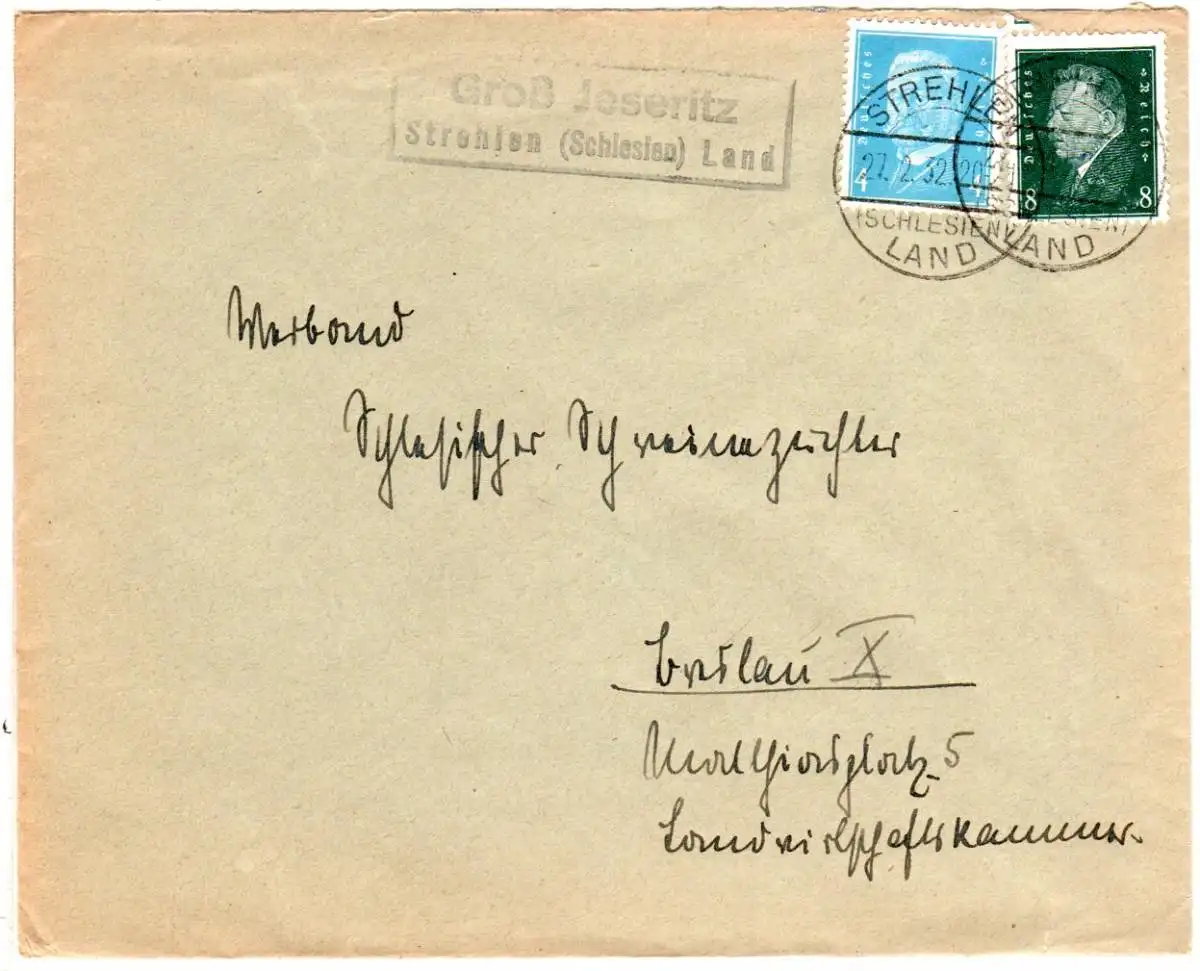 Groß Jeseritz
Strehlen (Schlesien) Land
Deutsches Reich
4 4
Deutsches Reich
8 8
STREHLEN
27. 2. 32. 20-21
(SCHLESIEN)
LAND
(SCHLESIEN)
LAND
Verband
Schlesischer Schweinezüchter
Breslau X
Matthiasplatz 5
Landwirtschaftskammer.